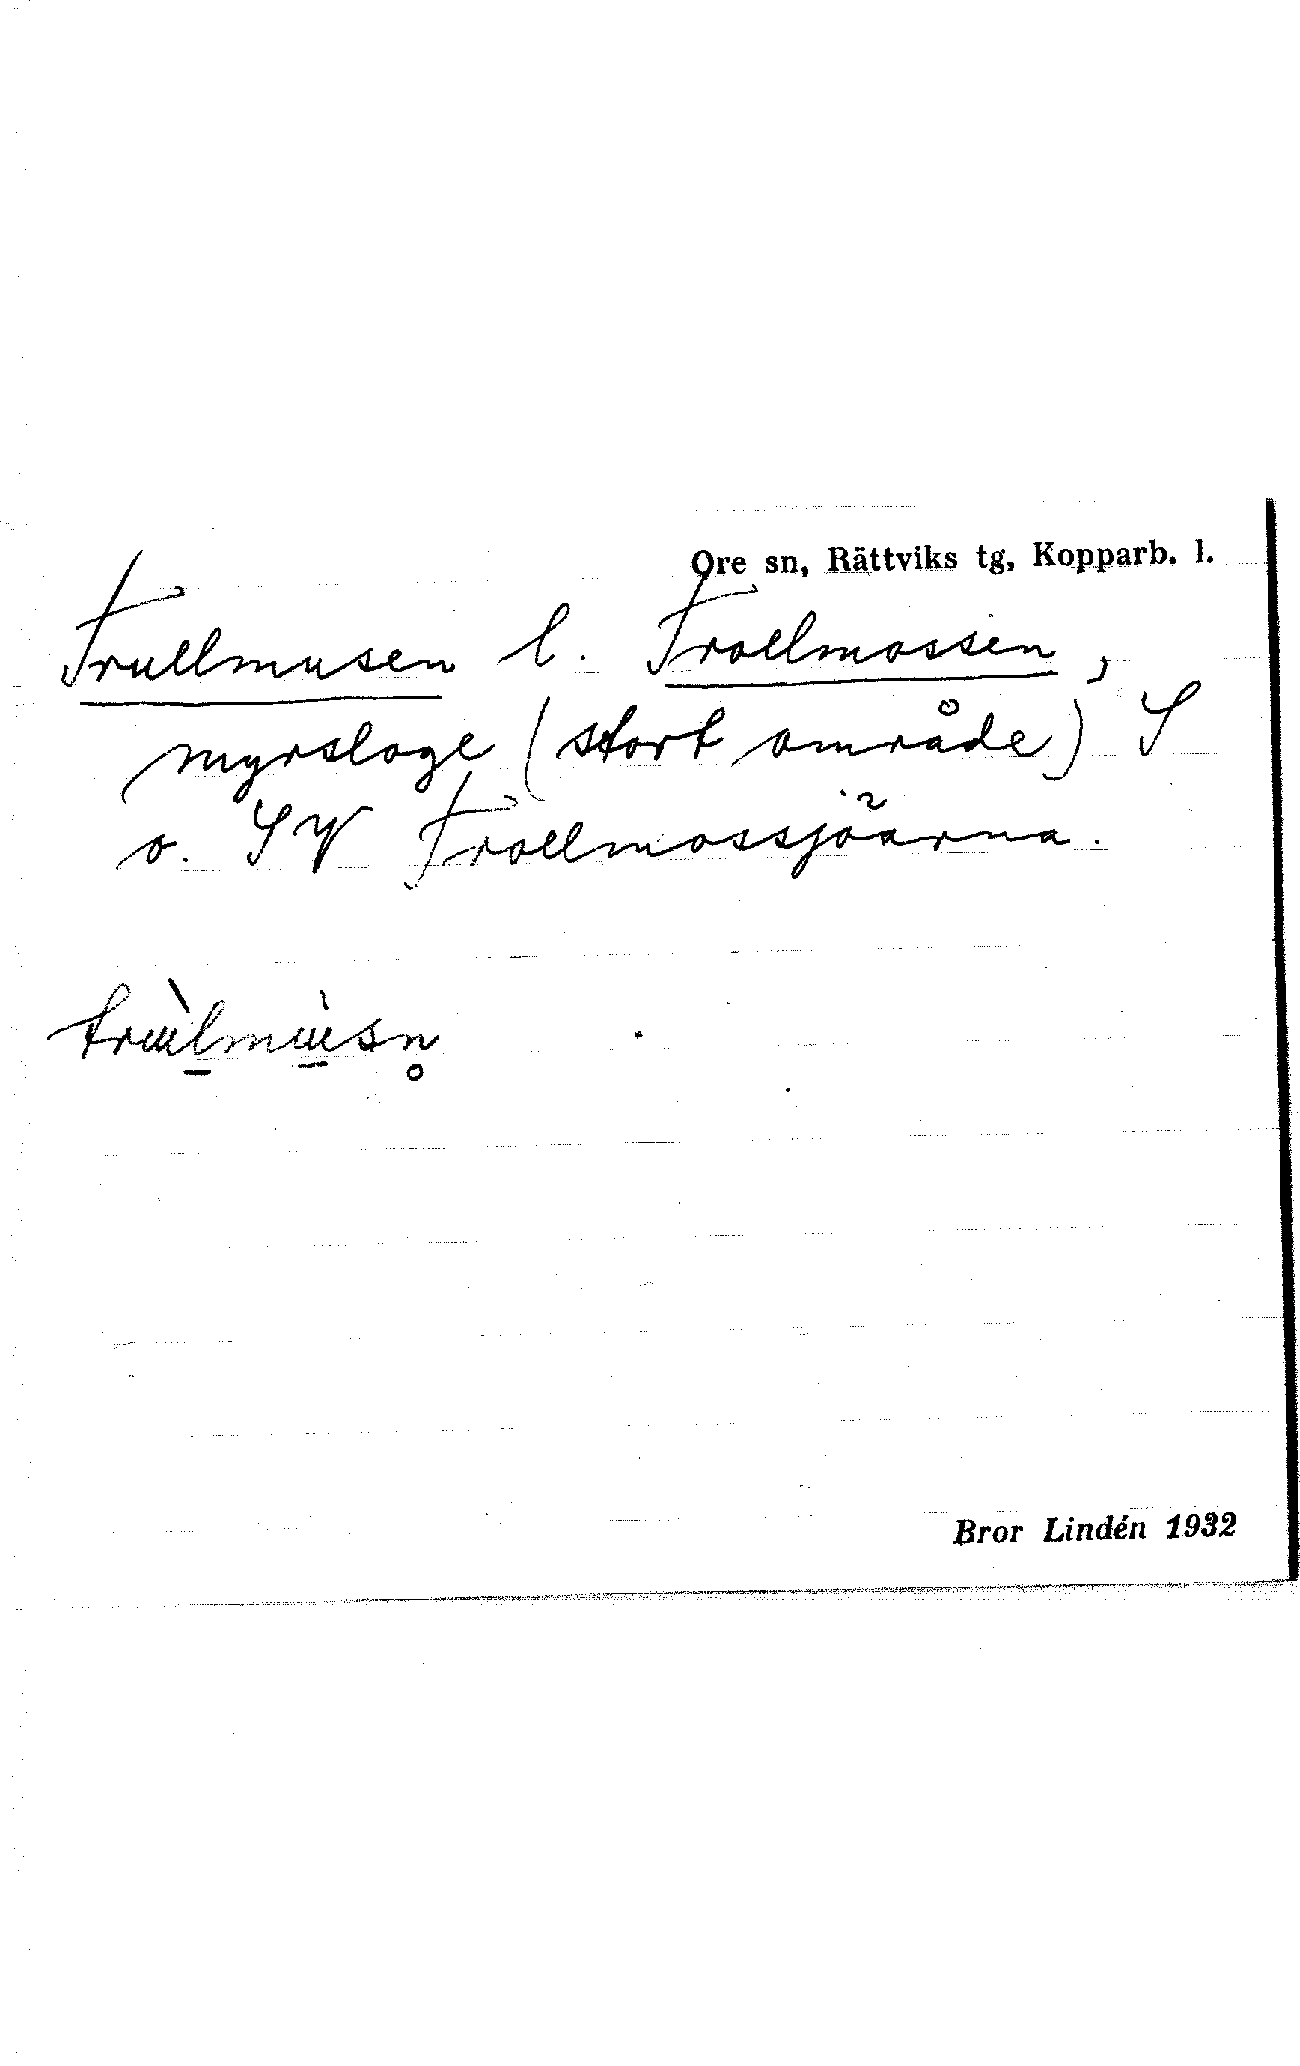 Ore sn, Rättviks tg, Kopparb. l.
Trullmusen l. Trollmossen,
myrsloge (stort område) S
o. SV Trollmossjöarna.
Bror Lindén 1932